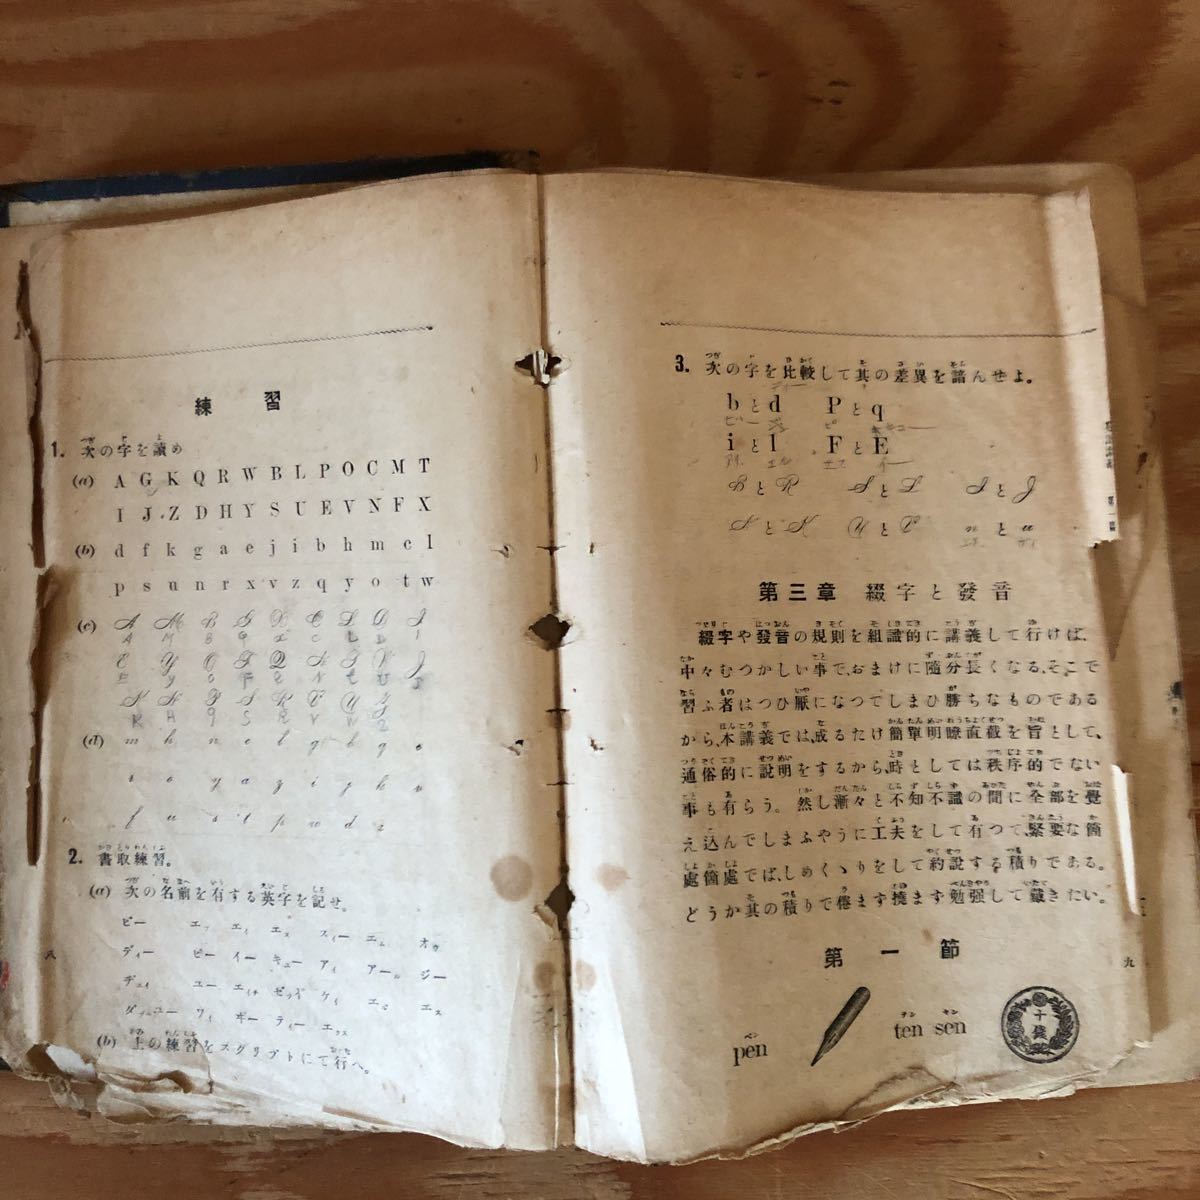 練習
1. 次の字を讀め
(a) A G K Q R W B L P O C M T
I J Z D H Y S U E V N F X
(b) d f k g a e j i b h m c l
p s u n r x v z q y o t w
(c) A M B G X C L D I
E Y O F Q N T V J
K H P S R V W Z
(d) m h n e l g b q c
r o y a z i j k v
f u s t p w d x
2. 書取練習。
(a) 次の名前を有する英字を記せ。
ビー エフ エイ エヌ スィー エム オウ
ディー ピー イー キュー アイ アール ジー
ヂェイ ユー エイチ ゼッド ケイ エル エス
ダブユー ワイ ギー ティー エクス
(b) 上の練習をスクリプトにて行へ。
八
3. 次の字を比較して其の差異を諳んせよ。
bとd Pとq
iとl FとE
BとR SとL IとJ
NとK
第三章 綴字と發音
綴字や發音の規則を組識的に講義して行けば、
中々むつかしい事で、おまけに隨分長くなる、そこで
習ふ者はつひ厭になつてしまひ勝ちなものである
から、本講義では、成るたけ簡單明瞭直截を旨として、
通俗的に説明をするから、時としては秩序的でない
事も有らう。然し漸々と不知不識の間に全部を覺
え込んでしまふやうに工夫をして有つて、緊要な箇
處箇處でば、しめくゝりをして約説する積りである。
どうか其の積りで倦まず撓まず勉强して戴きたい。
第一節
pen ペン
ten テン sen セン
十錢
九